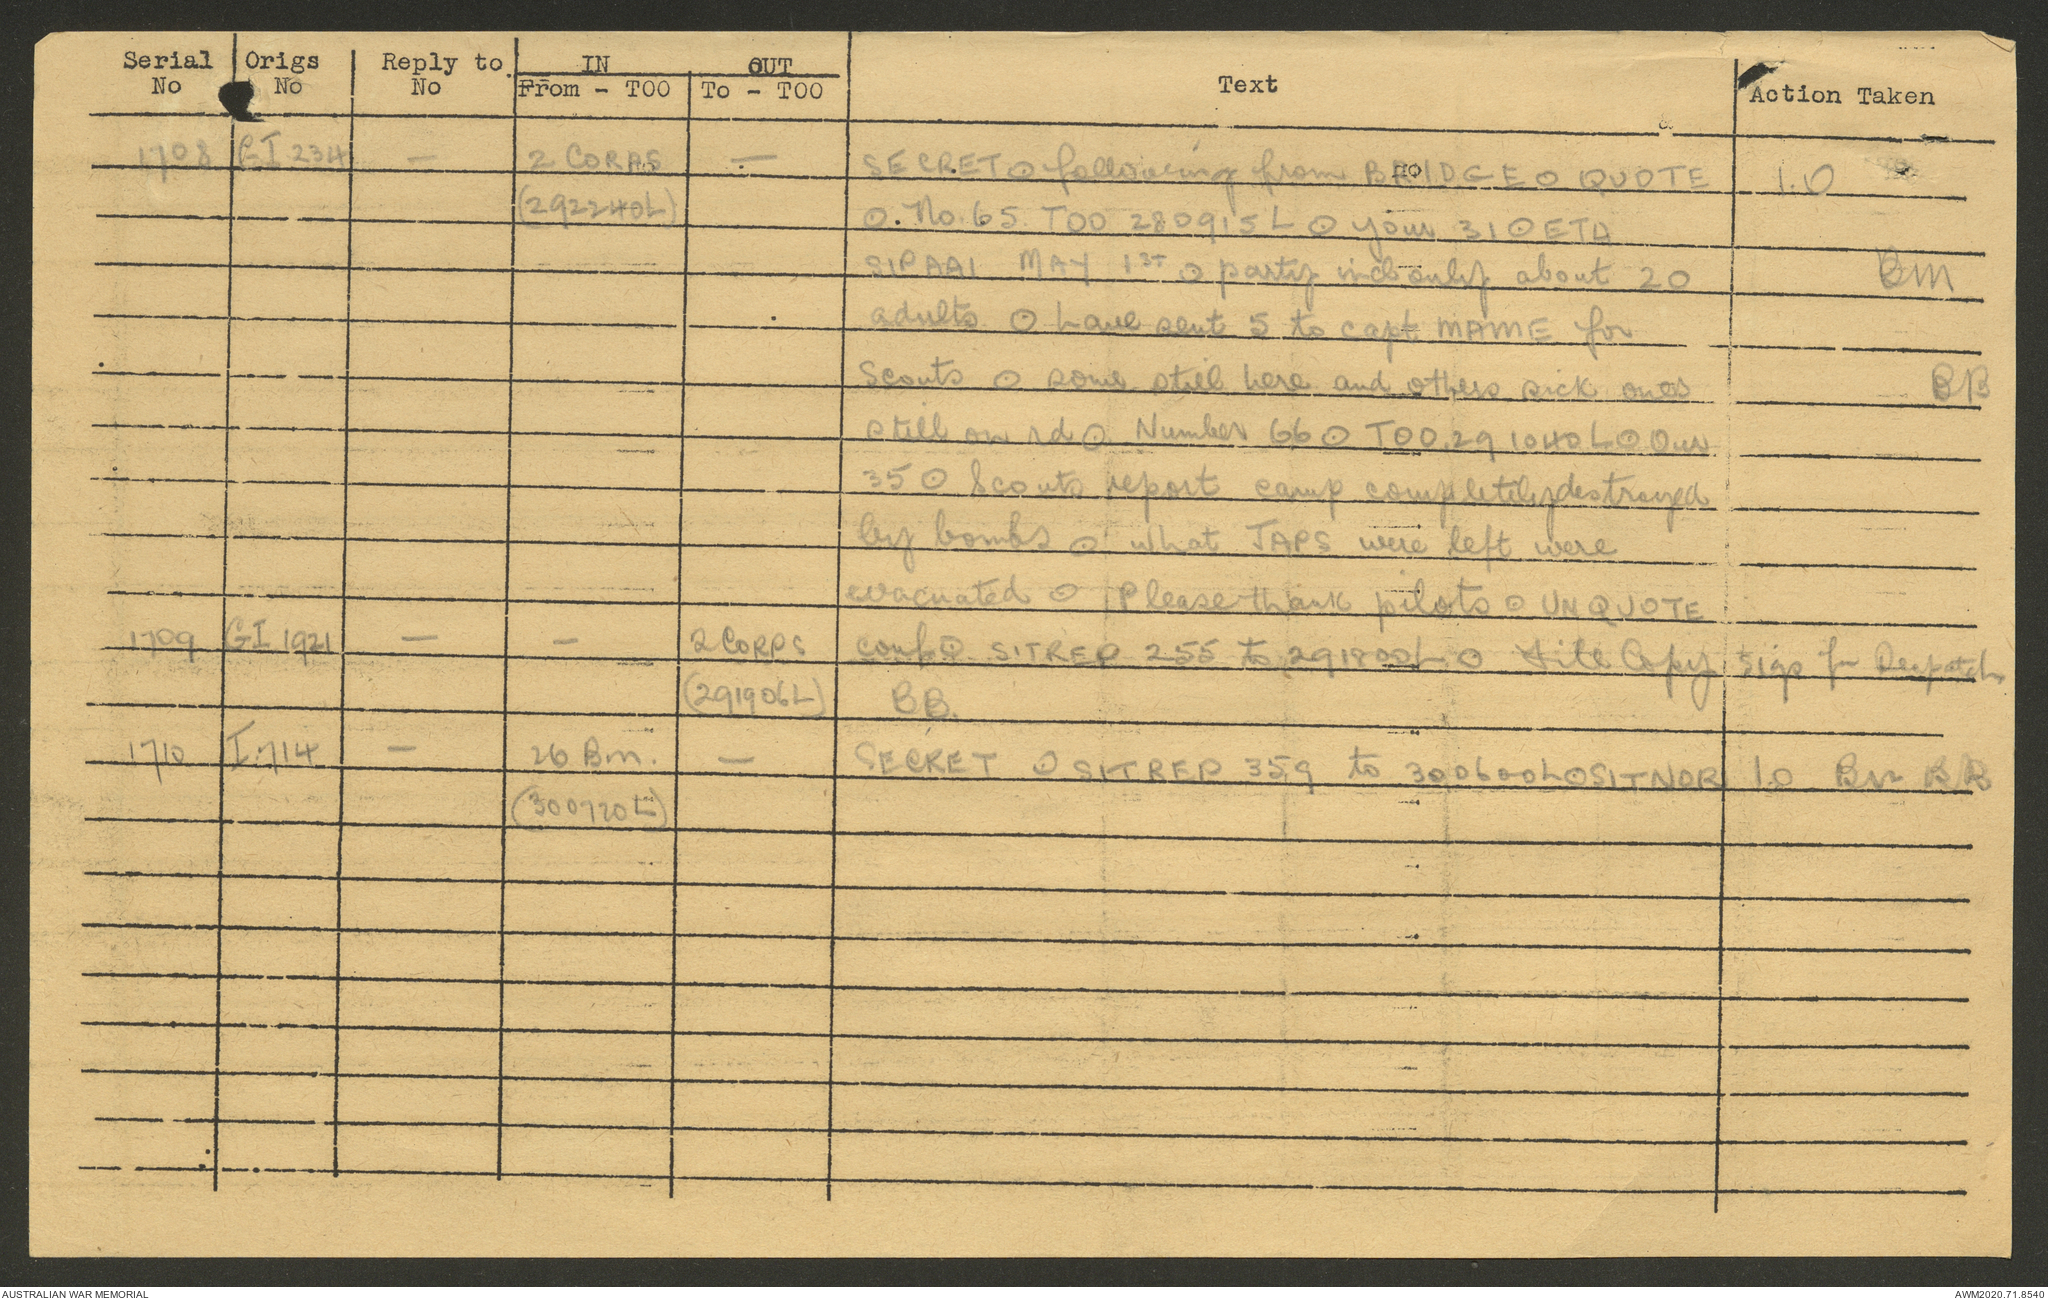 Serial No | Origs No | Reply to No | IN From - TOO | OUT To - TOO | Text | Action Taken
1708 | GI 234 | — | 2 CORPS | — | SECRET ⊙ following from BRIDGE ⊙ QUOTE | I.O
(292240L) | ⊙. No. 65 TOO 280915L ⊙ your 31 ⊙ ETA
SIPAAI MAY 1st ⊙ party incl only about 20 | BM
adults ⊙ have sent 5 to capt MAME for
Scouts ⊙ some still here and others sick ones | BB
still on rd ⊙ Number 66 ⊙ TOO 291040L ⊙ Our
35 ⊙ Scouts report camp completely destroyed
by bombs ⊙ what JAPS were left were
evacuated ⊙ Please thank pilots ⊙ UNQUOTE
1709 | GI 1921 | — | — | 2 CORPS | conf ⊙ SITREP 255 to 291800L ⊙ File Copy | Sigs for Despatch
(291906L) | BB.
1710 | I.714 | — | 26 Bn. | — | SECRET ⊙ SITREP 359 to 300600L ⊙ SITNOR | I.O BM BB
(300720L)
AUSTRALIAN WAR MEMORIAL
AWM2020.71.8540